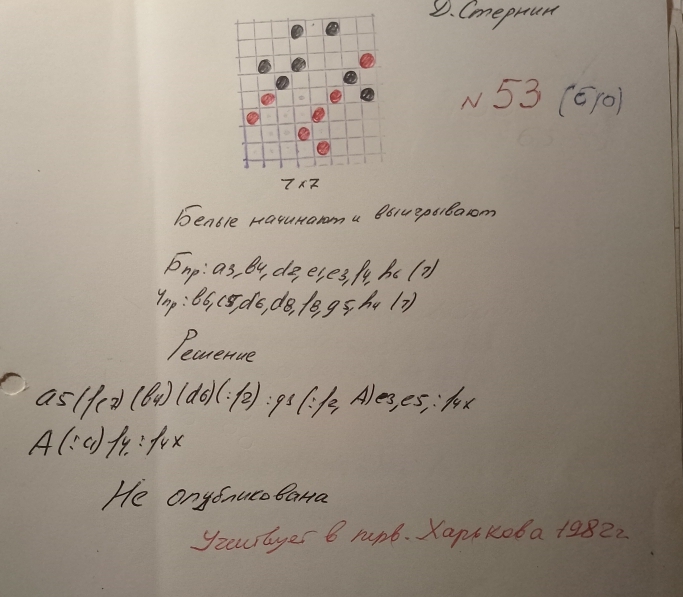 Д. Стернин
N 53 (б/о)
7x7
Белые начинают и выигрывают
Бпр: a3, b4, d2, e1, e3, f4, h6 (7)
Чпр: b6, c5, d6, d8, f8, g5, h4 (7)
Решение
a5 (b4) (d6) (:f2) :g3 (:f2, A) e3, e5, :f4x
A (:a) f4, :f4x
Не опубликована
Участвует в перв. Харькова 1982г.